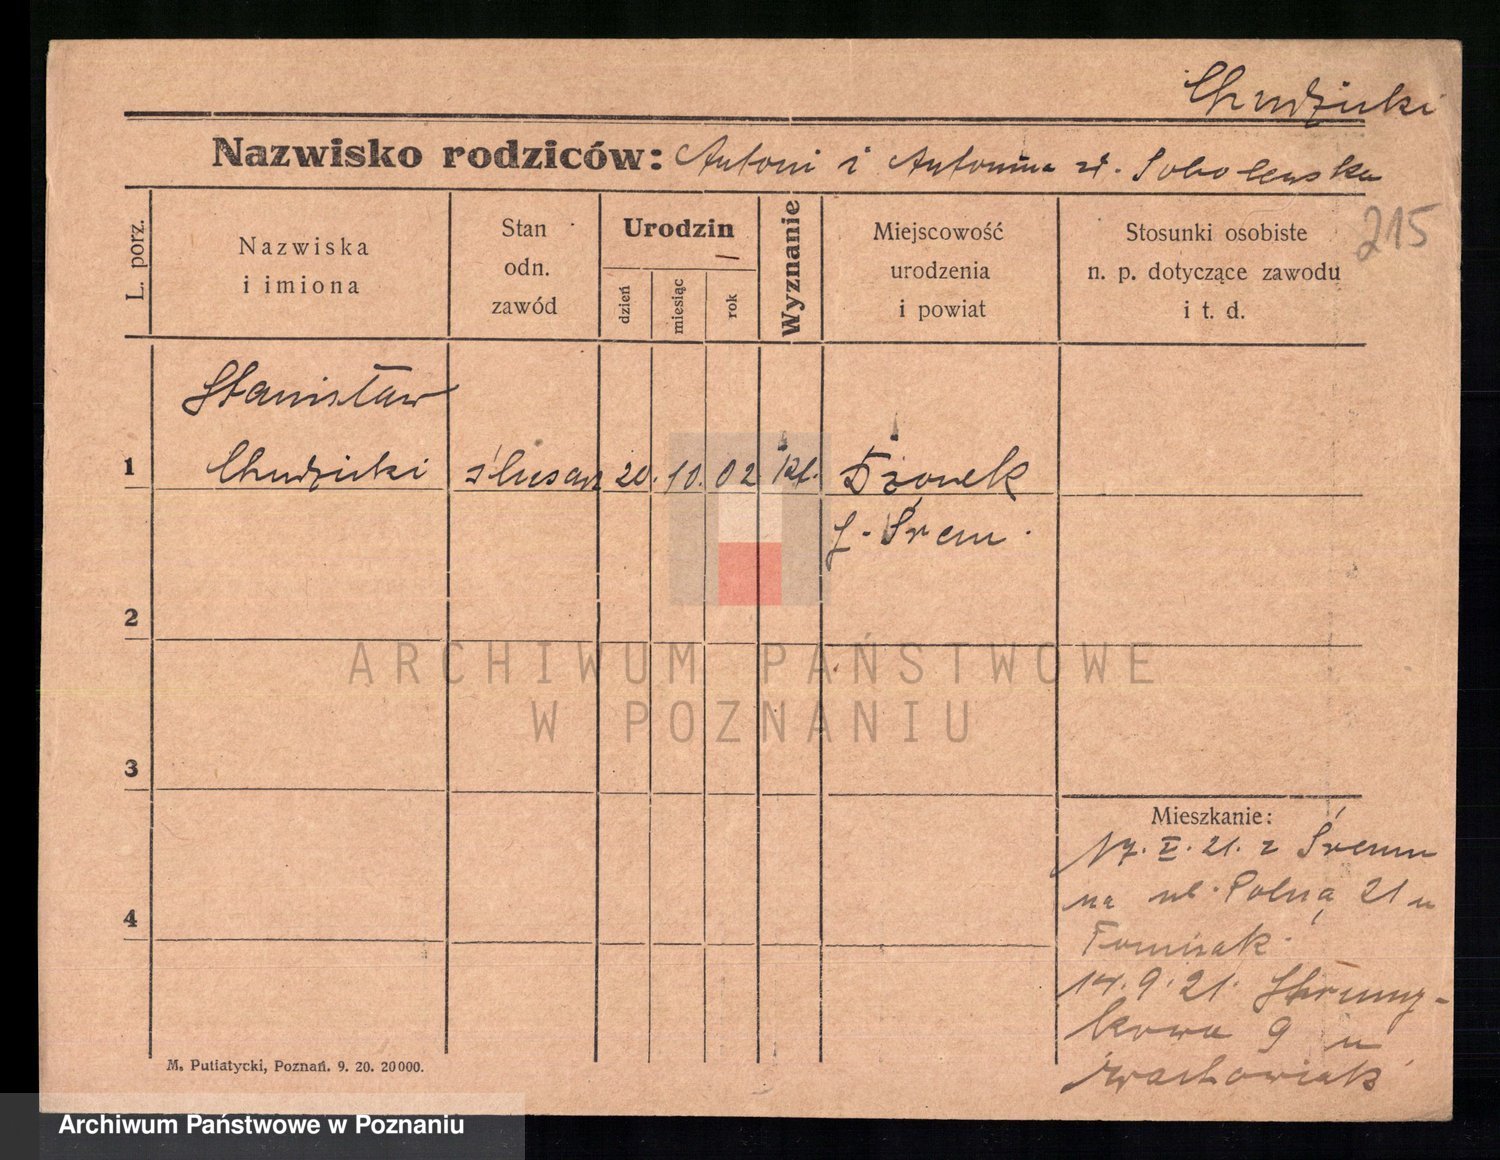 Chudzicki
Nazwisko rodziców: Antoni i Antonina zd. Sobolewska
215
L. porz.
Nazwiska
i imiona
Stan
odn.
zawód
Urodzin
dzień
miesiąc
rok
Wyznanie
Miejscowość
urodzenia
i powiat
Stosunki osobiste
n. p. dotyczące zawodu
i t. d.
Stanisław
1 Chudzicki ślusarz 20. 10. 02 kt.
Śrem
2
ARCHIWUM PAŃSTWOWE
W POZNANIU
3
Mieszkanie:
17. X. 21. z Śremu
na ul. Polną 21 u
4
14. 9. 21.
9 u
M. Putiatycki, Poznań. 9. 20. 20000.
Archiwum Państwowe w Poznaniu